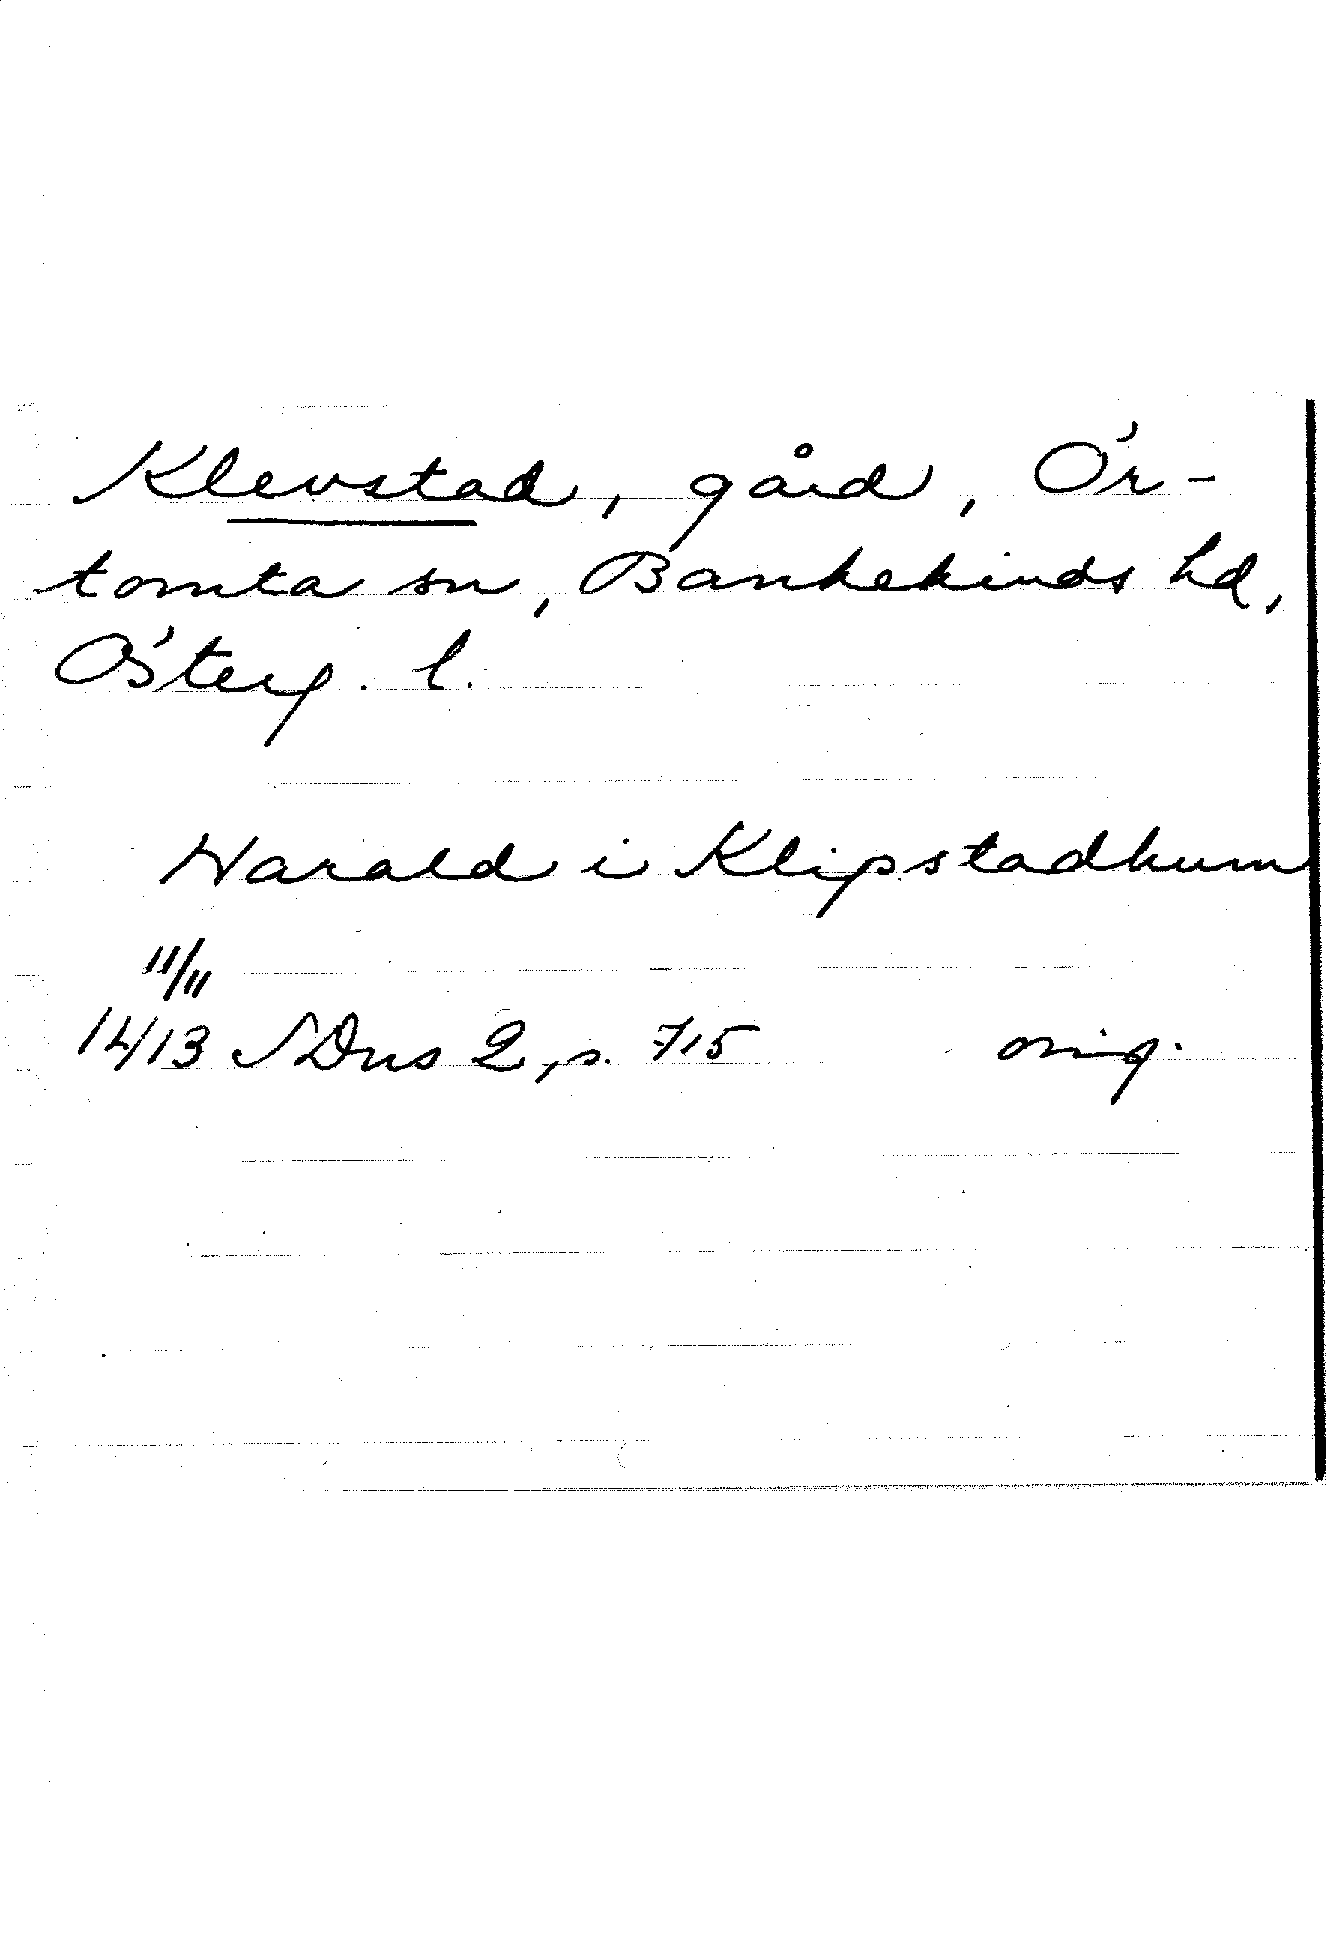 Klevstad, gård, Ör-
tomta sn, Bankekinds hd,
Österg. l.
Harald i Klipstadhum
11/11
14/13 SDns 2, s. 715 orig.